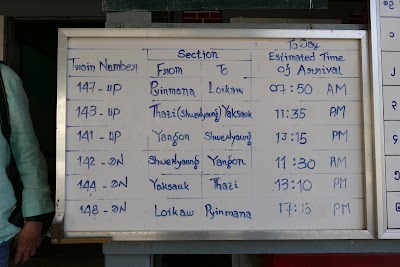 To Day
Section Estimated Time
Train Number From To of Arrival
147-UP Pyinmana Loikaw 07:50 AM
143-UP Thazi (Shwenyaung) Yaksauk 11:35 AM
141-UP Yangon Shwenyaung 13:15 PM
142-DN Shwenyaung Yangon 11:30 AM
144-DN Yaksauk Thazi 13:10 PM
148-DN Loikaw Pyinmana 17:15 PM